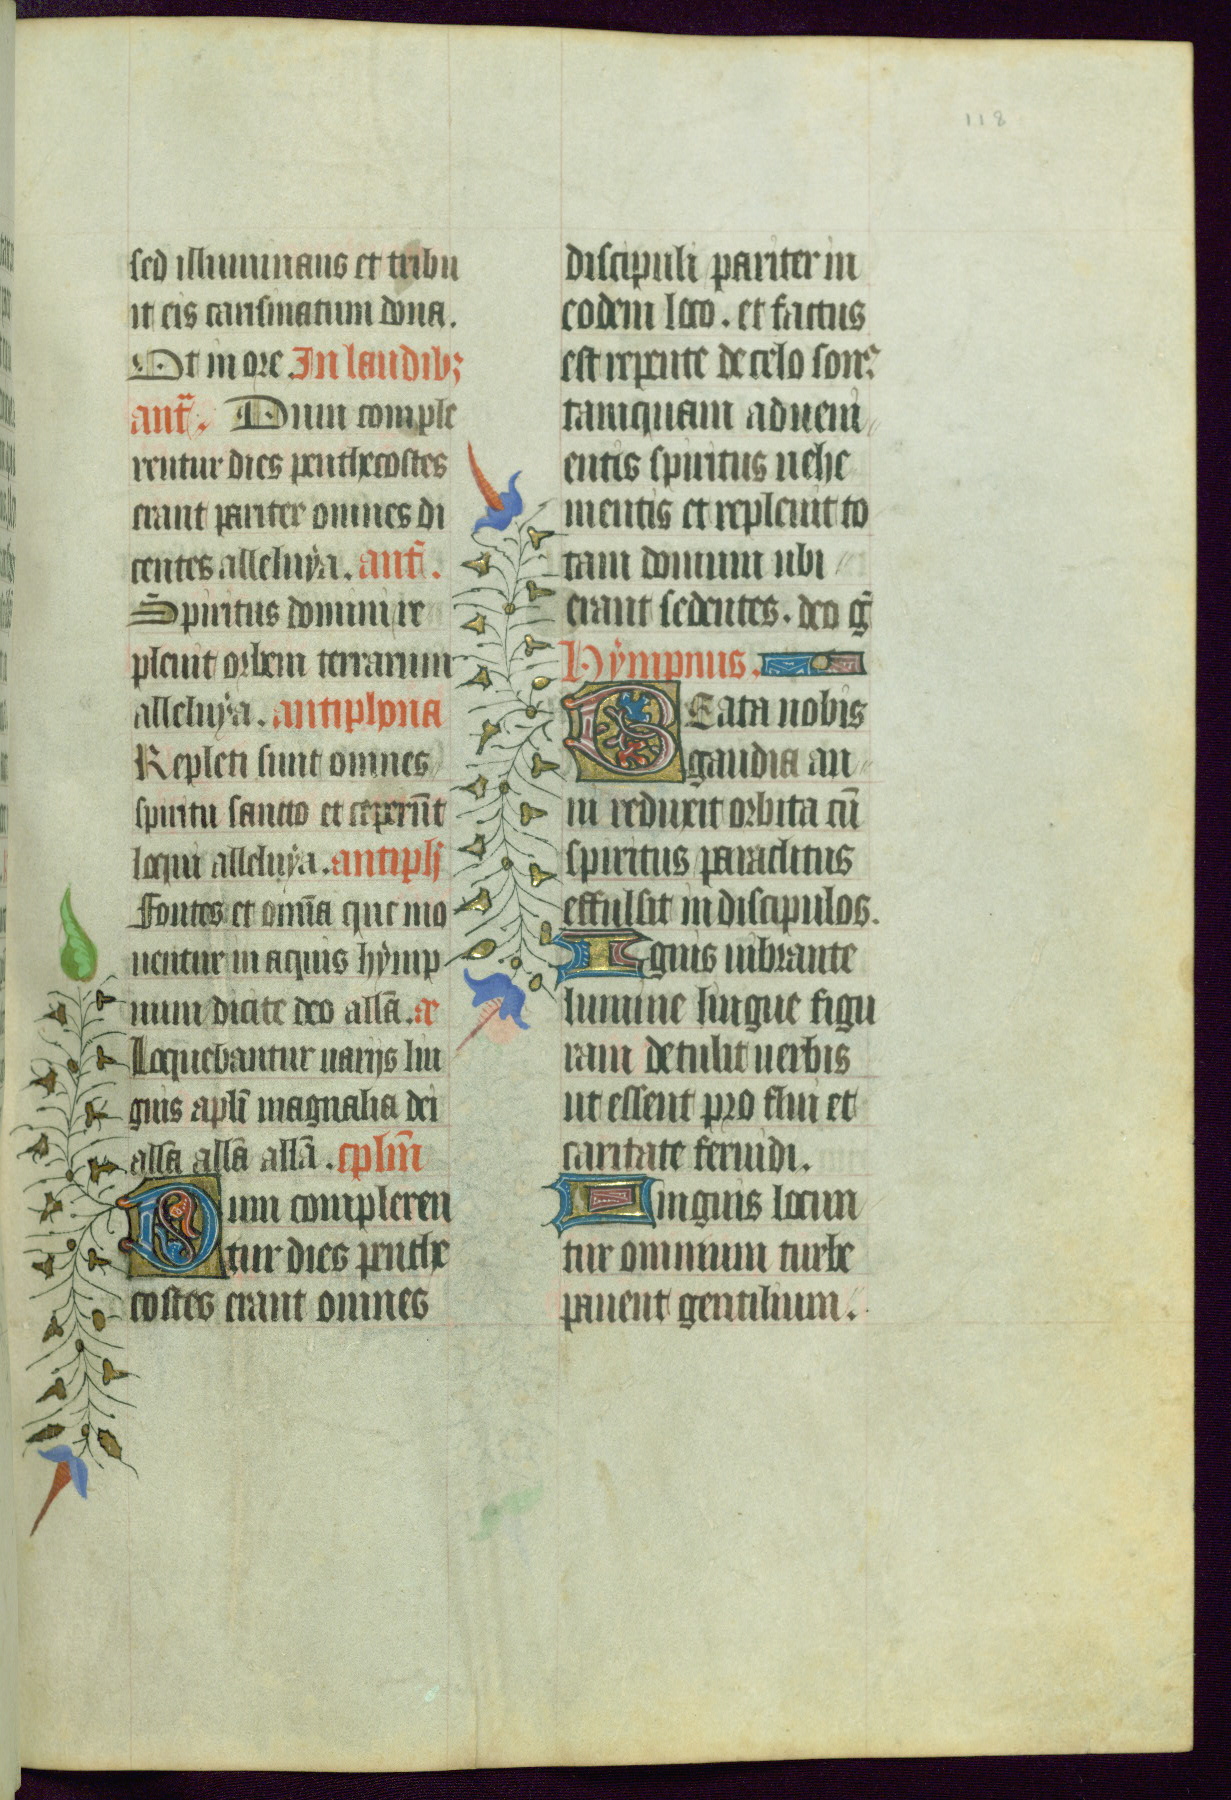 118
sed illuminans et tribu
it eis carismatum dona.
Et in ore. In laudib;
anť. Dum comple
rentur dies penthecostes
erant pariter omnes di
centes alleluÿa. anť.
Spiritus domini re
pleuit orbem terrarum
alleluÿa. antiphona
Repleti sunt omnes
spiritu sancto et ceperūt
loqui alleluÿa. antiph
Fontes et omīa que mo
uentur in aquis hÿmp
num dicite deo allā. a
Loquebantur uarijs lin
guis apłi magnalia dei
allā allā allā. cplm̄
Dum compleren
tur dies penthe
costes erant omnes
discipuli pariter in
eodem loco. et factus
est repente de celo sonꝰ
tamquam adueni
entis spiritus uehe
mentis et repleuit to
tam domum ubi
erant sedentes. deo ḡ
Hÿmpnus.
BEata nobis
gaudia an
ni reduxit orbita cū
spiritus paraclitus
effulsit in discipulos.
Ignis uibrante
lumine lingue figu
ram detulit uerbis
ut essent proflui et
caritate feruidi.
Linguis locun
tur omnium turbe
pauent gentilium.